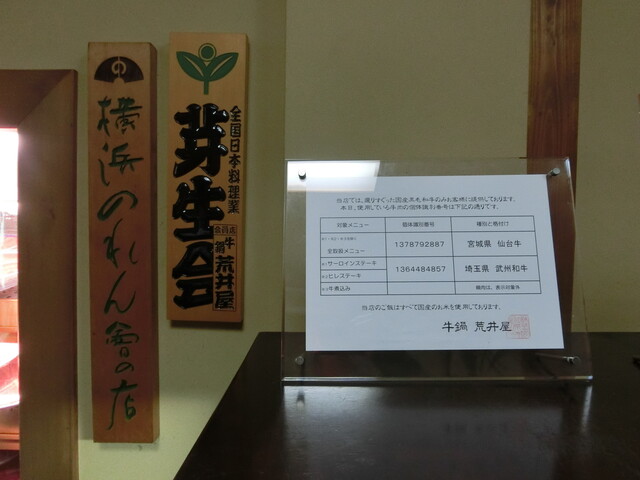 の
横浜のれん會の店
全国日本料理業
芽生会
会員店
牛鍋 荒井屋
当店では、選りすぐった国産黒毛和牛のみお客様に提供しております。
本日、使用している牛肉の個体識別番号は下記の通りです。
対象メニュー 個体識別番号 種別と格付け
全取扱メニュー 1378792887 宮城県 仙台牛
サーロインステーキ
ヒレステーキ 1364484857 埼玉県 武州和牛
牛煮込み
当店のご飯はすべて国産のお米を使用しております。
牛鍋 荒井屋